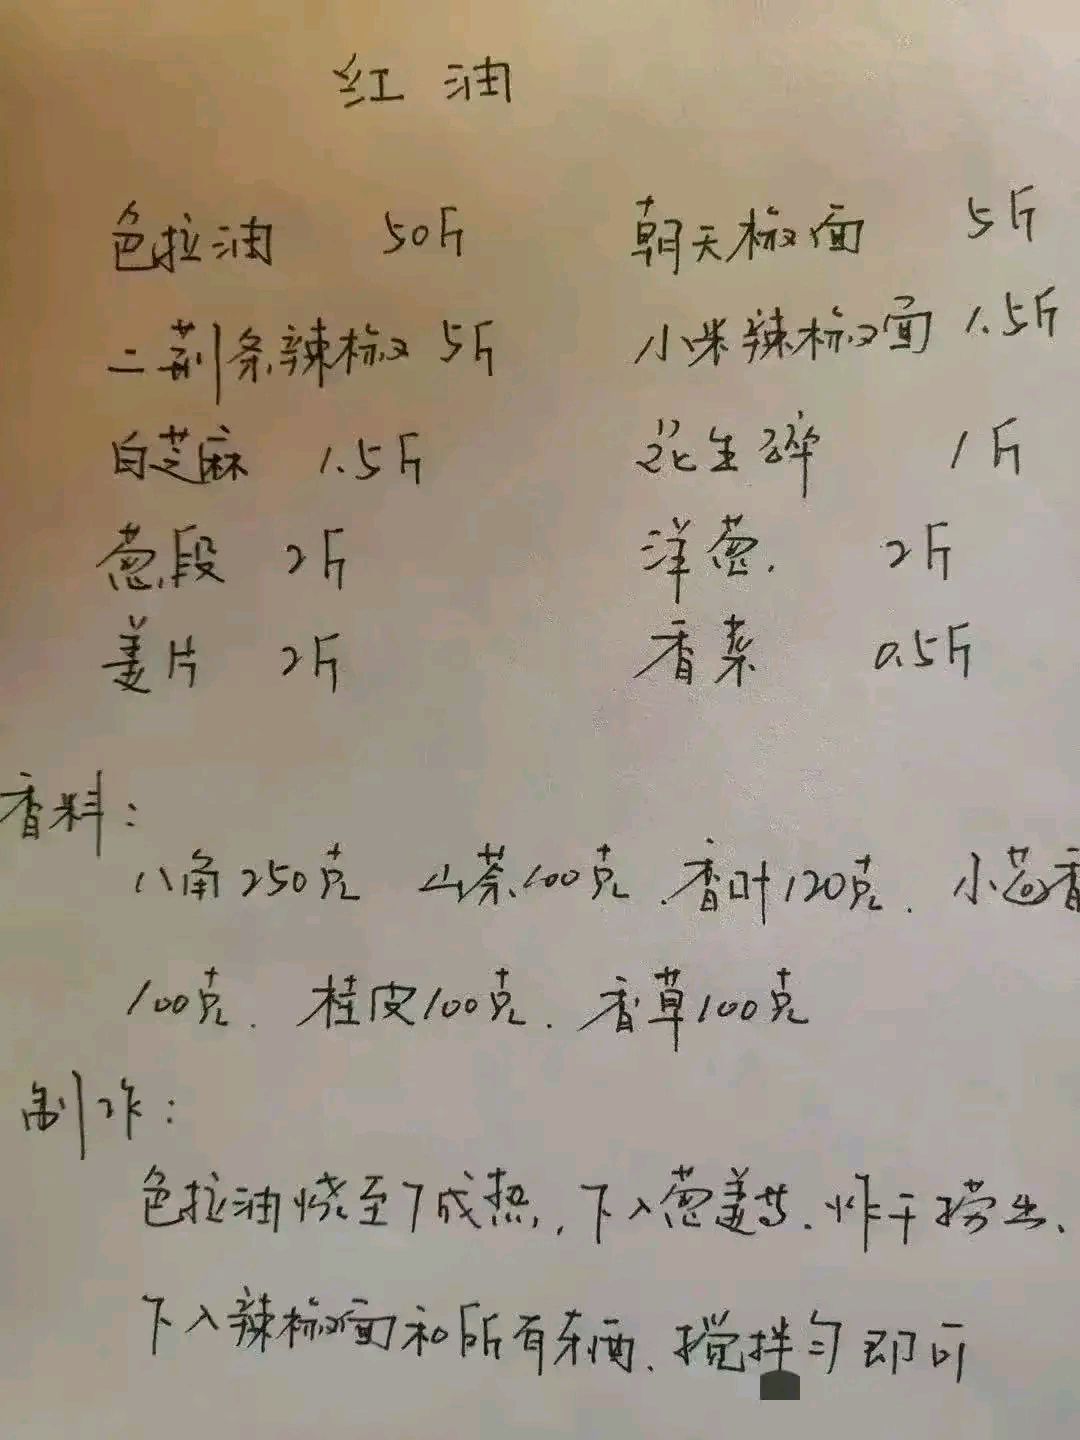 红油
色拉油 50斤 朝天椒面 5斤
二荆条辣椒 5斤 小米辣椒面 1.5斤
白芝麻 1.5斤 花生碎 1斤
葱段 2斤 洋葱. 2斤
姜片 2斤 香菜 0.5斤
香料:
八角250克 山茶100克.香叶120克. 小茴香
100克. 桂皮100克. 香草100克
制作:
色拉油烧至7成热,下入葱姜等.炸干捞出、
下入辣椒面和所有东西.搅拌匀即可